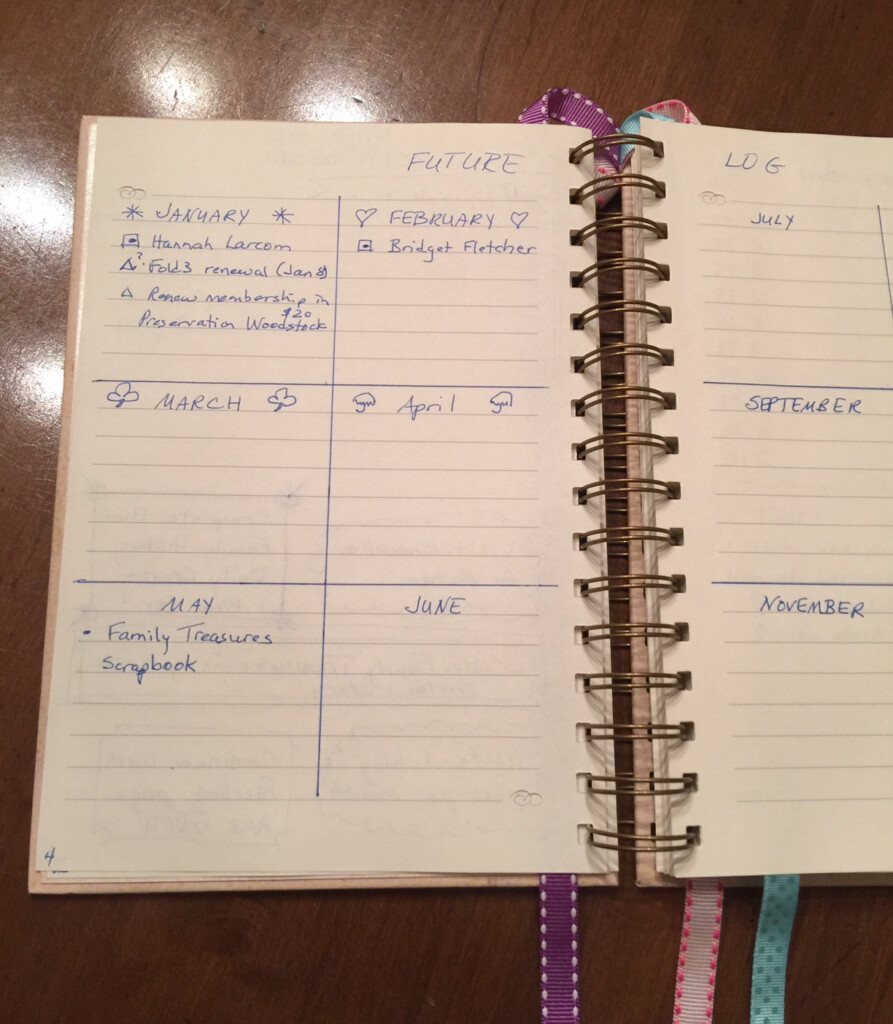 FUTURE
JANUARY
Hannah Larcom
? Fold3 renewal (Jan 8)
Renew membership in
$20
Preservation Woodstock
FEBRUARY
Bridget Fletcher
MARCH
April
MAY
• Family Treasures
Scrapbook
JUNE
4
LOG
JULY
SEPTEMBER
NOVEMBER